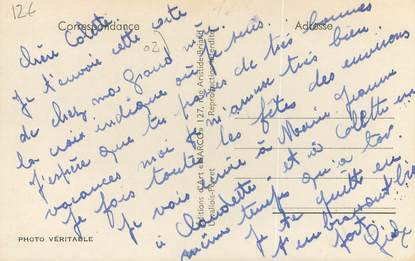 12€
Correspondance
Adresse
(02)
Chère Colette
Je t'envoie cette carte
de chez ma Grand mère
la croix indique où je suis.
J'espère que tu passes de très bonnes
vacances moi je m'amuse très bien.
Je fais toutes les fêtes des environs
Je vais écrire à Marie Jeanne
à Claudette. et à Colette en
même temps qu'à toi.
Je te quitte en
t'embrassant bien
fort.
Editions d'Art 127, Rue Aristide-Briand
Levallois-Perret
Reproduction interdite
PHOTO VÉRITABLE